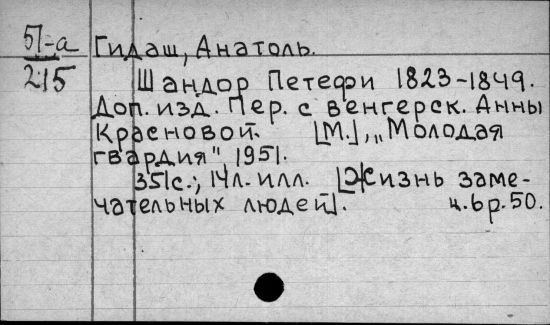 51-а Гидаш, Анатоль.
215 Шандор Петефи 1823-1849.
Доп. изд. Пер. с венгерск. Анны
Красновой. [М.], „Молодая
гвардия" 1951.
351с.; 14л. илл. [Жизнь заме-
чательных людей]. ц. 6р. 50.